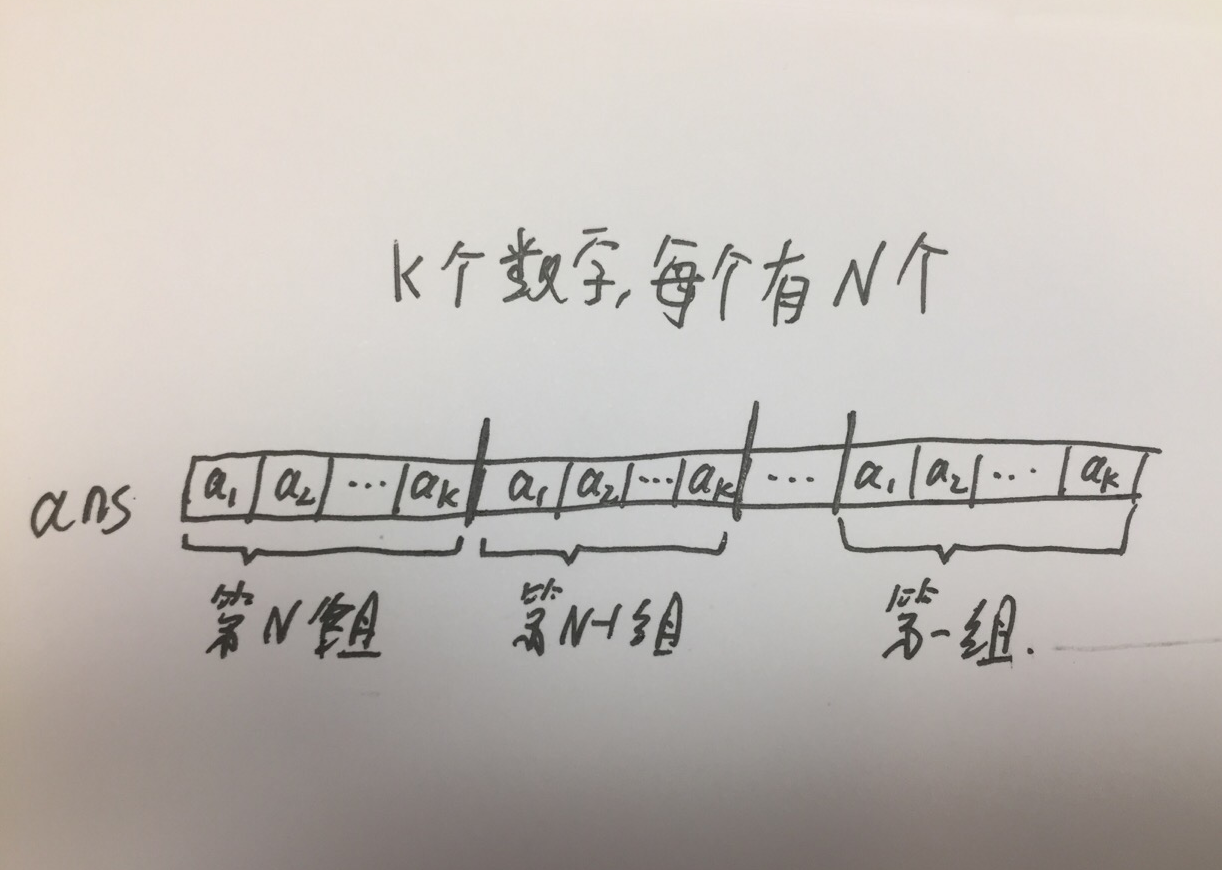 K个数字,每个有N个
ans a₁ a₂ ... aₖ a₁ a₂ ... aₖ ... a₁ a₂ ... aₖ
第N组 第N-1组 第一组.